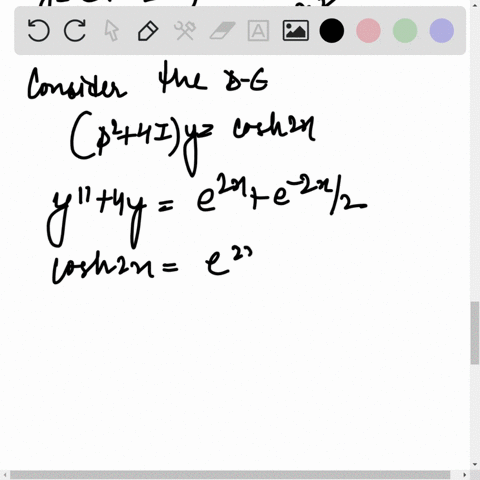 Consider the D-G
(D²+4I)y = cosh2x
y''+4y = e^2x+e^-2x/2
cosh2x = e^2x